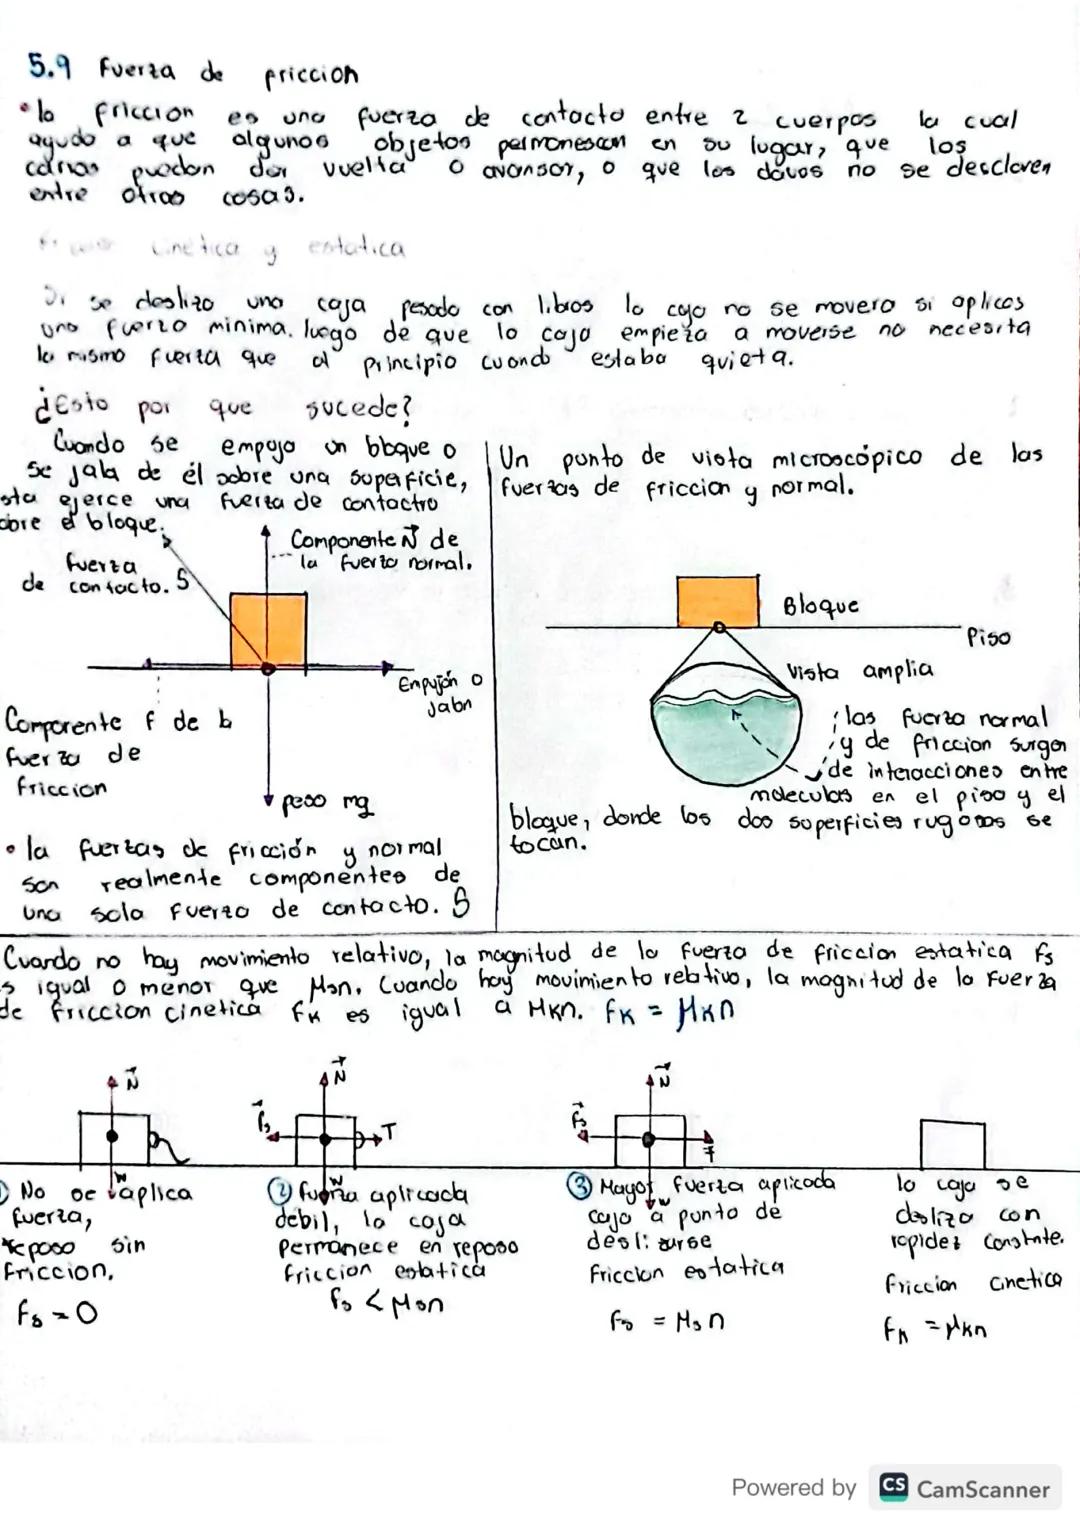 5.9 fuerza de friccion
• la friccion es una fuerza de contacto entre 2 cuerpos la cual
ayuda a que algunos objetos permanescan en su lugar, que los
carros puedan dar vuelta o avansar, o que los clavos no se desclaven
entre otras cosas.
cinetica y estatica
Si se desliza una caja pesada con libros la caja no se movera si aplicas
una fuerza minima. luego de que la caja empieza a moverse no necesita
la misma fuerza que al principio cuando estaba quieta.
¿Esto por que sucede?
Cuando se empuja un bloque o
se jala de él sobre una superficie,
sta ejerce una fuerza de contactro
obre el bloque.
fuerza
de contacto. S
Componente N de
la fuerza normal.
Empujón o
Jabn
Componente f de la
fuerza de
friccion
peso mg
• la fuerzas de fricción y normal
son realmente componentes de
una sola fuerza de contacto. S
Un punto de vista microscópico de las
fuerzas de friccion y normal.
Bloque
Piso
Vista amplia
las fuerza normal
y de friccion surgen
de interacciones entre
moleculas en el piso y el
bloque, donde las dos superficies rugosas se
tocan.
Cuando no hay movimiento relativo, la magnitud de la fuerza de friccion estatica fs
s igual o menor que μsn. Cuando hay movimiento relativo, la magnitud de la fuerza
de friccion cinetica fk es igual a μkn. fk = μkn
N
w
N
fs
T
w
N
fs
T
w
1 No se aplica
fuerza,
reposo sin
friccion.
fs = 0
2 fuerza aplicada
debil, la caja
permanece en reposo
friccion estatica
fs < μsn
3 Mayor fuerza aplicada
caja a punto de
deslizarse
friccion estatica
fs = μsn
la caja se
desliza con
rapidez constnte.
friccion cinetica
fk = μkn
Powered by CS CamScanner